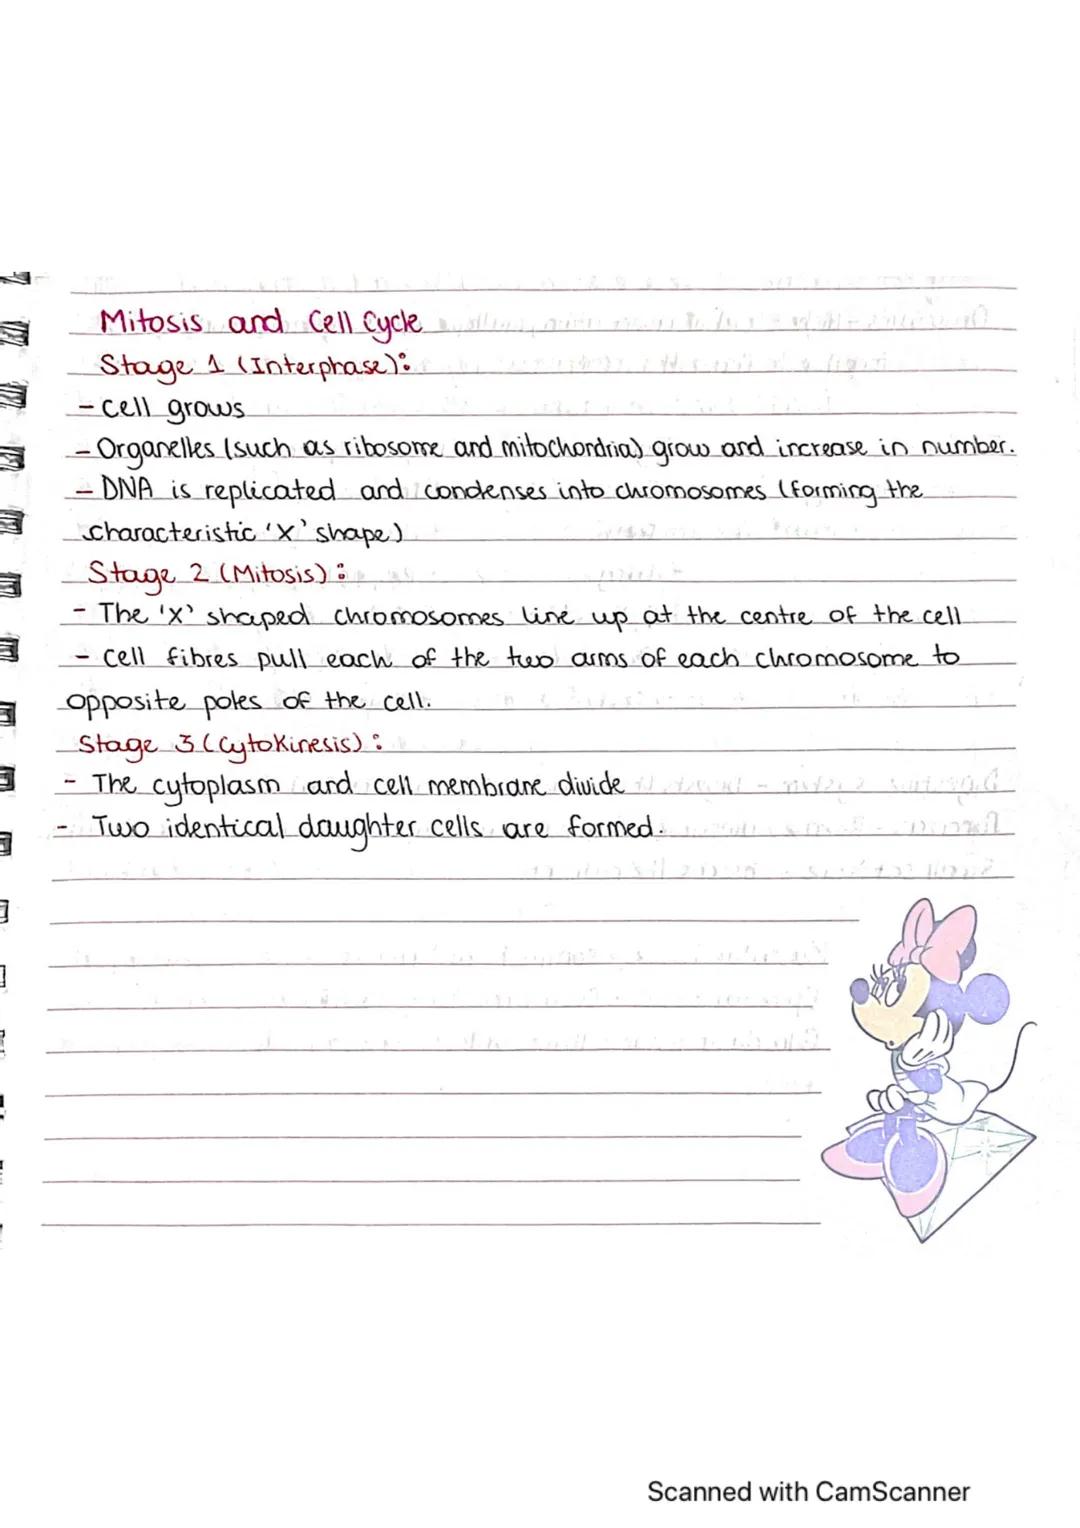 Mitosis and Cell Cycle
Stage 1 (Interphase):
- Cell grows
- Organelles (such as ribosome and mitochondria) grow and increase in number.
- DNA is replicated and condenses into chromosomes (forming the
characteristic 'X' shape)
Stage 2 (Mitosis):
- The 'X' shaped chromosomes line up at the centre of the cell
- Cell fibres pull each of the two arms of each chromosome to
opposite poles of the cell.
Stage 3 (Cytokinesis):
- The cytoplasm and cell membrane divide
- Two identical daughter cells are formed.
Scanned with CamScanner